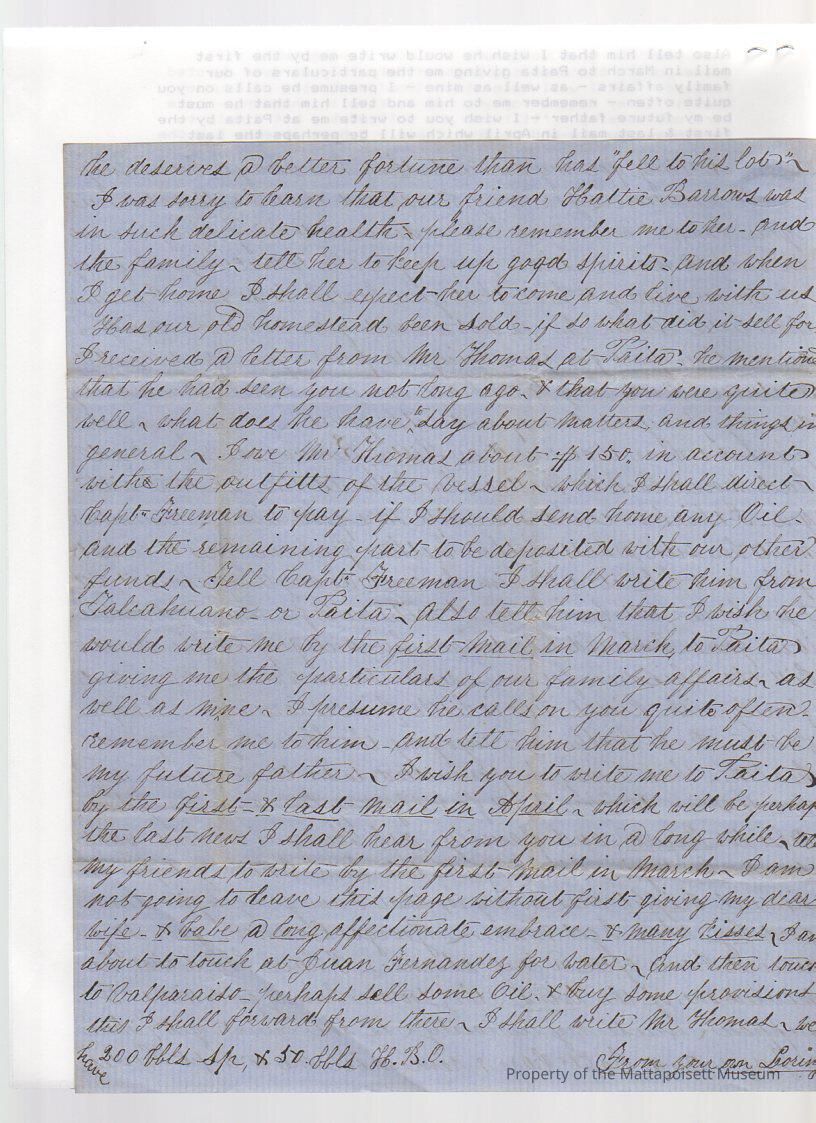 Also tell him that I wish he would write me by the first
mail in March to Paita giving me the particulars of our
family affairs - as well as mine - I presume he calls on you
quite often - remember me to him and tell him that he must
be my future father - I wish you to write me at Paita by the
first & last mail in April which will be perhaps the last
he deserves a better fortune than has "fell to his lot" ~
I was sorry to learn that our friend Hattie Barrows was
in such delicate health ~ please remember me to her - and
the family ~ tell her to keep up good spirits - and when
I get home I shall expect her to come and live with us
Has our old homestead been sold - if so what did it sell for
I received a letter from Mr Thomas at Paita - he mention
that he had seen you not long ago - & that you were quite
well ~ what does he have to say about matters, and things in
general ~ I owe Mr Thomas about $150. in account
with the outfitts of the vessel ~ which I shall direct
Capt Freeman to pay - if I should send home any Oil -
and the remaining part to be deposited with our other
funds ~ Tell Capt Freeman I shall write him from
Talcahuano - or Paita ~ also tell him that I wish he
would write me by the first mail in March, to Paita
giving me the particulars of our family affairs ~ as
well as mine ~ I presume he calls on you quite often -
remember me to him - and tell him that he must be
my future father ~ I wish you to write me to Paita
by the first - & last mail in April ~ which will be perhap
the last news I shall hear from you in a long while ~ tell
my friends to write by the first mail in March ~ I am
not going to leave this page without first giving my dear
wife - & babe a long affectionate embrace - & many kisses ~ I am
about to touch at Juan Fernandez for water ~ and then touch
to Valparaiso - perhaps sell some Oil. & buy some provisions
this I shall forward from there ~ I shall write Mr Thomas ~ we
have 200 bbls Sp, & 50 bbls H.B.O. From your own Loring
Property of the Mattapoisett Museum